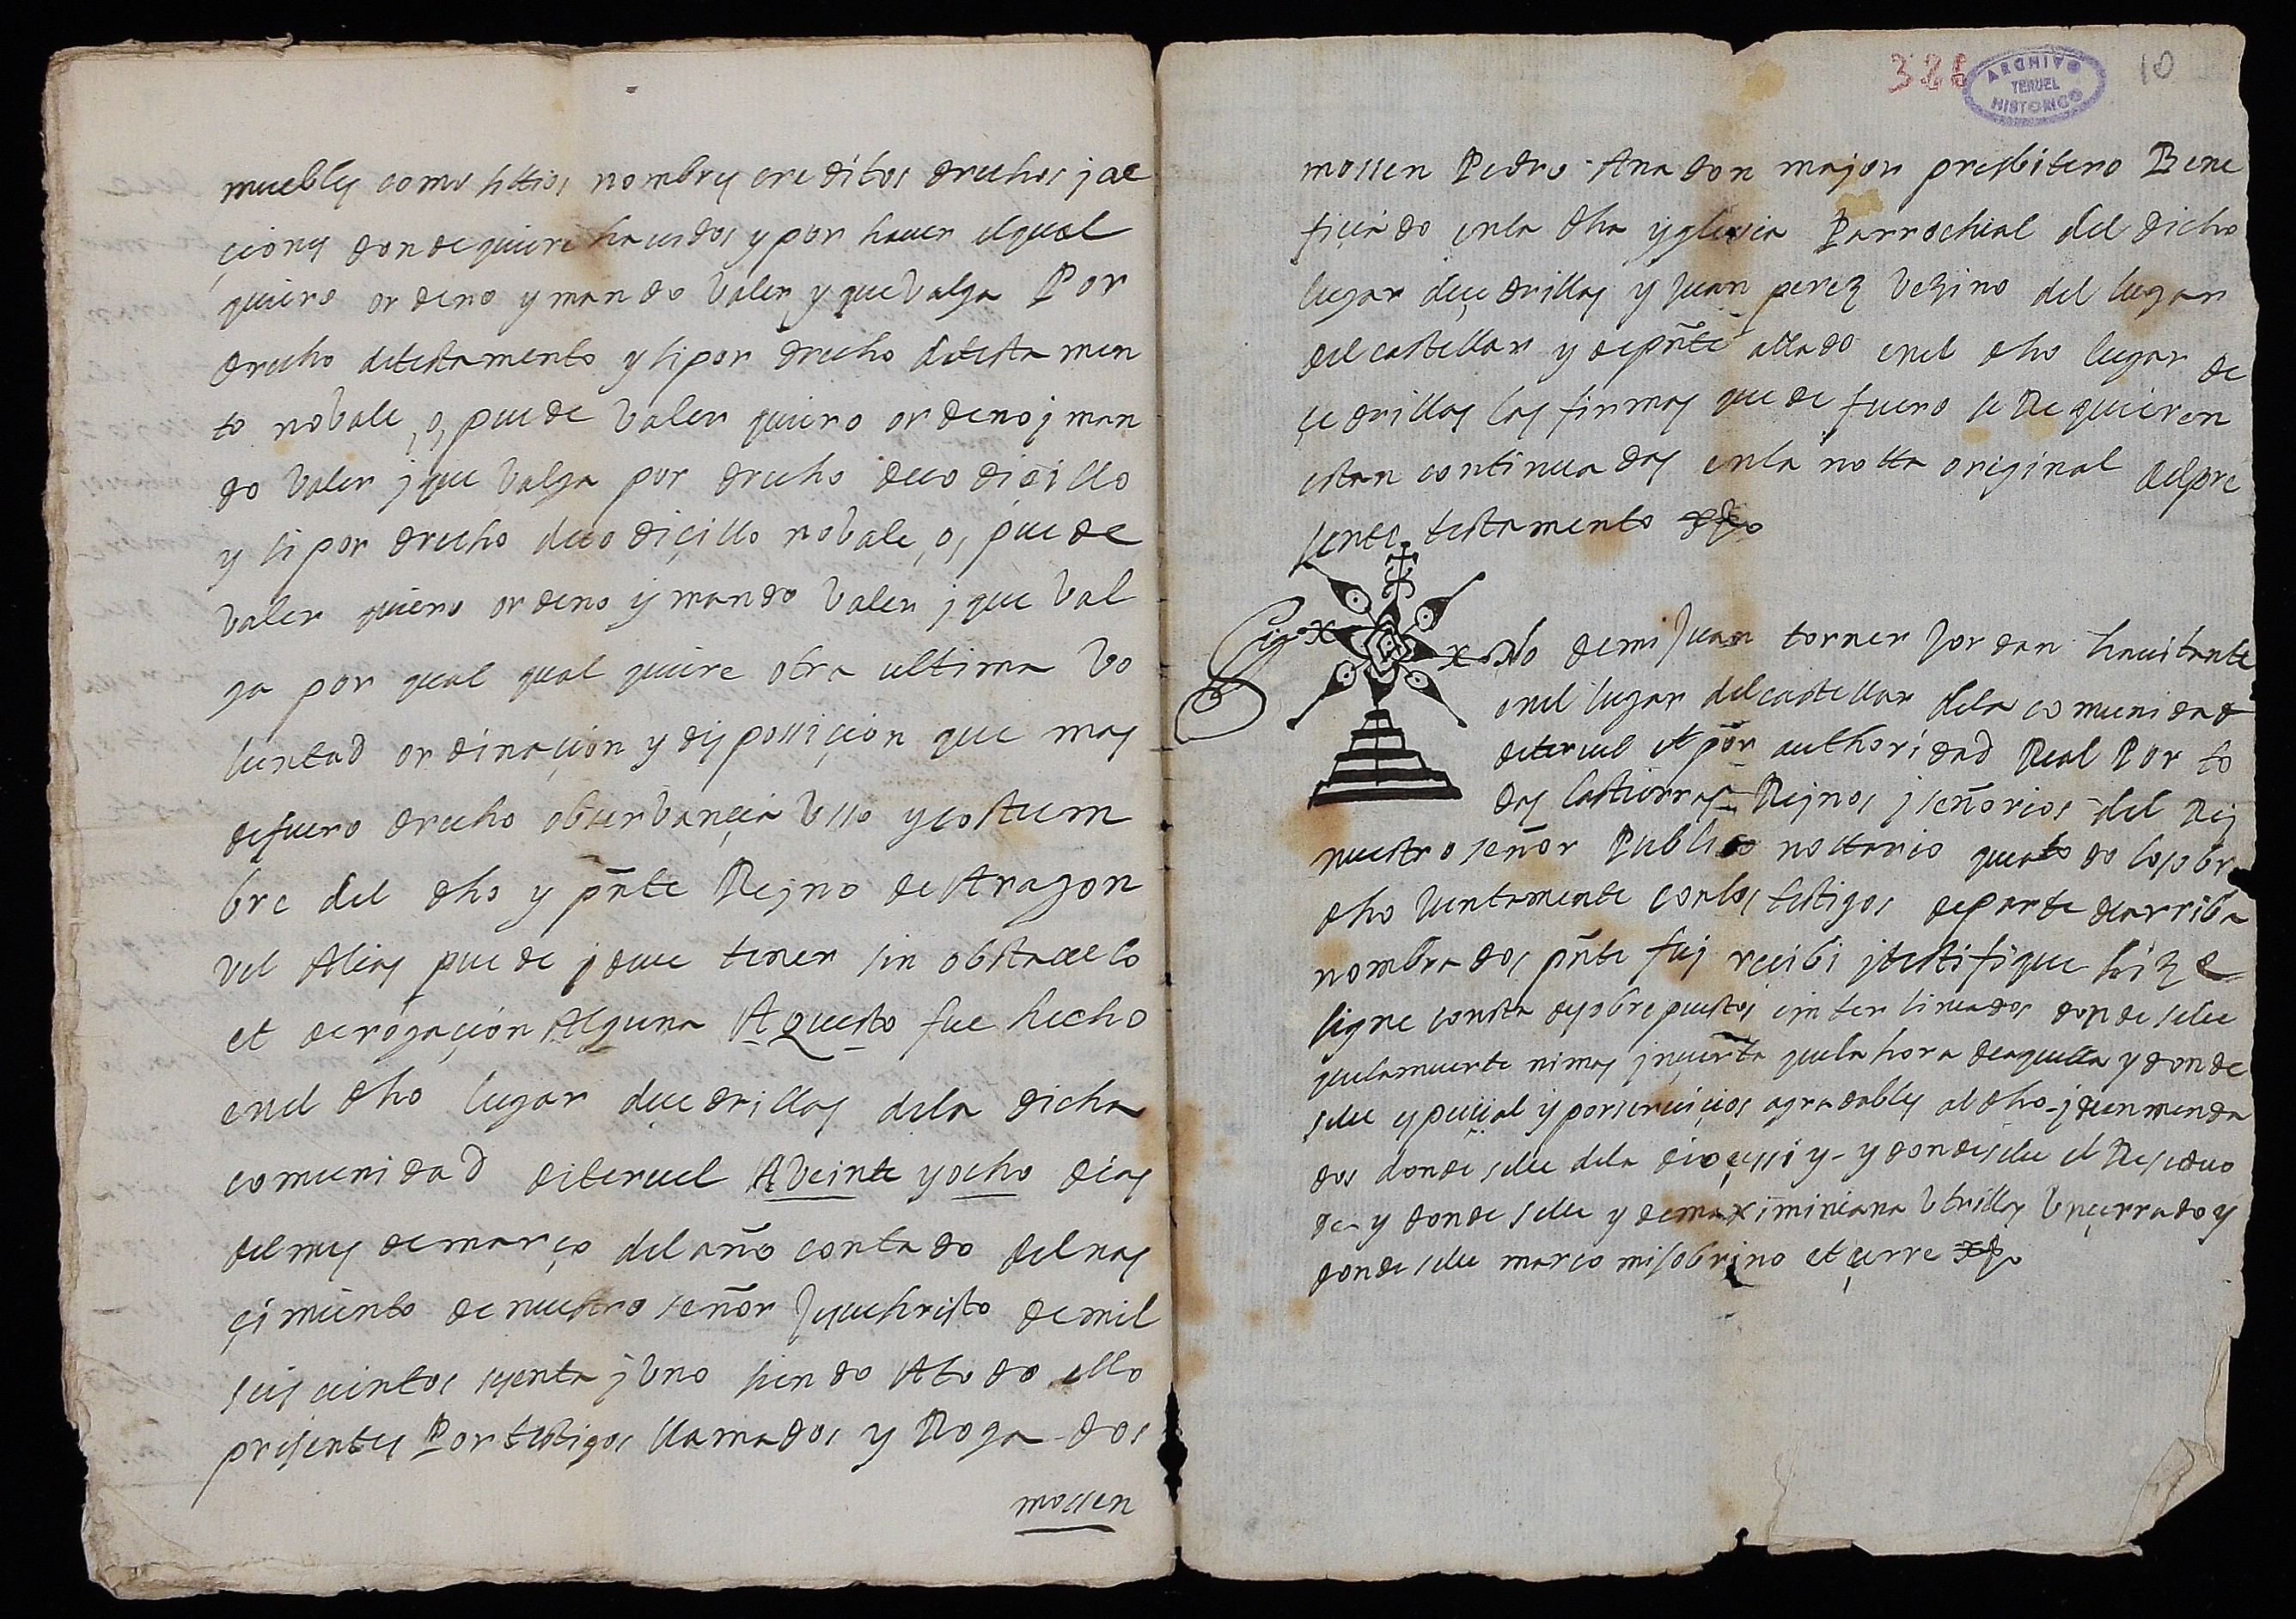 muebles como sittios nombres creditos drechos j ac
çiones donde quiere hauidos y por hauer el qual
quiero ordeno y mando valer y que valga Por
drecho de testamento y si por drecho de testamen
to no vale, o, puede valer quiero ordeno j man
do valer j que valga por drecho de codiçillo
y si por drecho de codiçillo no vale, o, puede
valer quiero ordeno y mando valer j que val
ga por qual qual quiere otra ultima vo
luntad ordinaçion y dispossiçion que mas
de fuero drecho obserbançia vsso y costum
bre del dho y pñte Rejno de Aragon
vel Alias puede j deue tener sin obstaculo
et derogaçion Alguna Aquesto fue hecho
en el dho lugar de çedrillas dela dicha
comunidad de teruel A veinte y ocho dias
del mes de março del año contado del nas
çimiento de nuestro señor Jesuchristo de mil
seis cientos sesenta j vno siendo A todo ello
presentes Por testigos llamados y Roga-dos
mossen
328
ARCHIVO
TERUEL
HISTORICO
10
mossen Pedro Anadon major presbitero Bene
fiçiado en la dha yglesia Parrochial del dicho
lugar de çedrillas y Juan perez vezino del lugar
del castellar y de pñte allado en el dho lugar de
çedrillas las firmas que de fuero se Requieren
estan continuadas en la notta original del pre
sente testamento
Sig no de mi Juan torner Jordan hauitante
en el lugar del castellar dela comunidad
de teruel et por authoridad Real Por to
das las tierras Rejnos j señorios del Rej
nuestro señor Publico nottario que a todo lo sobre
dho Juntamente con los testigos de parte de arriba
nombrados pñte fuj recibi j testifique hize
signe consta de sobrepuestos e inter lineados donde se lee
que la muerte ni mas j nçierta que la hora de aquella y donde
se lee espeçial y por seruiçios agradables al dho j de enmenda
dos donde se lee dela dioçessi y- y donde se lee el Residuo
de- y donde se lee y de maximiniana vtrillas vn çerrado y
donde se lee marco mi sobrino et çerre